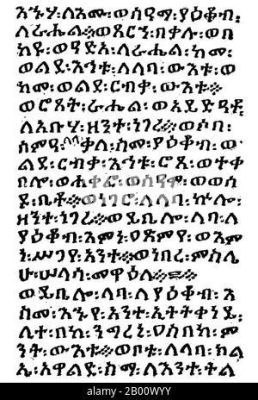 እኁሃ፡ለእሙ፡ወሰዓማ፡ያዕቆብ፡
ለራሔል፨ወጸርኀ፡በቃሉ፡ወበ
ከየ፡ወዓይድዓ፡ለራሔል፡ከመ፡
ወልደ፡እኅቱ፡ለላባ፡ውእቱ፡ወ
ከመ፡ወልደ፡ርብቃ፡ውእቱ፨
ወሮጸት፡ራሔል፡ወአይድዓት፡
ለአቡሃ፡ዘንተ፡ነገረ፨ወሶበ፡
ሰምዓ፡ላባ፡ቃለ፡ስሙ፡ያዕቆብ፡ወ
ልደ፡ርብቃ፡እኅቱ፡ሮጸ፡ወተቀ
በሎ፡ወሐቀፎ፡ወሰዓሞ፡ወወሰ
ዶ፡ቤቶ፨ወነገሮ፡ለላባ፡ኵሎ፡
ዘንተ፡ነገረ፨ወይቤሎ፡ላባ፡ለ
ያዕቆብ፡እምነ፡ዐጽምየ፡ወእም
ነ፡ሥጋየ፡አንተ፨ወነበረ፡ምስሌ
ሁ፡ሠላሳ፡መዋዕለ፨
ወይቤሎ፡ላባ፡ለያዕቆብ፡እ
ስመ፡እኁየ፡አንተ፡ኢትትቀነይ፡
ሊተ፡በከ፡ንግረኒ፡ዐስበከ፡ም
ንት፡ውእቱ፨ወቦቱ፡ለላባ፡ክል
ኤ፡አዋልድ፡ስማ፡ለእንተ፡ትል
alamy
2B00WYY